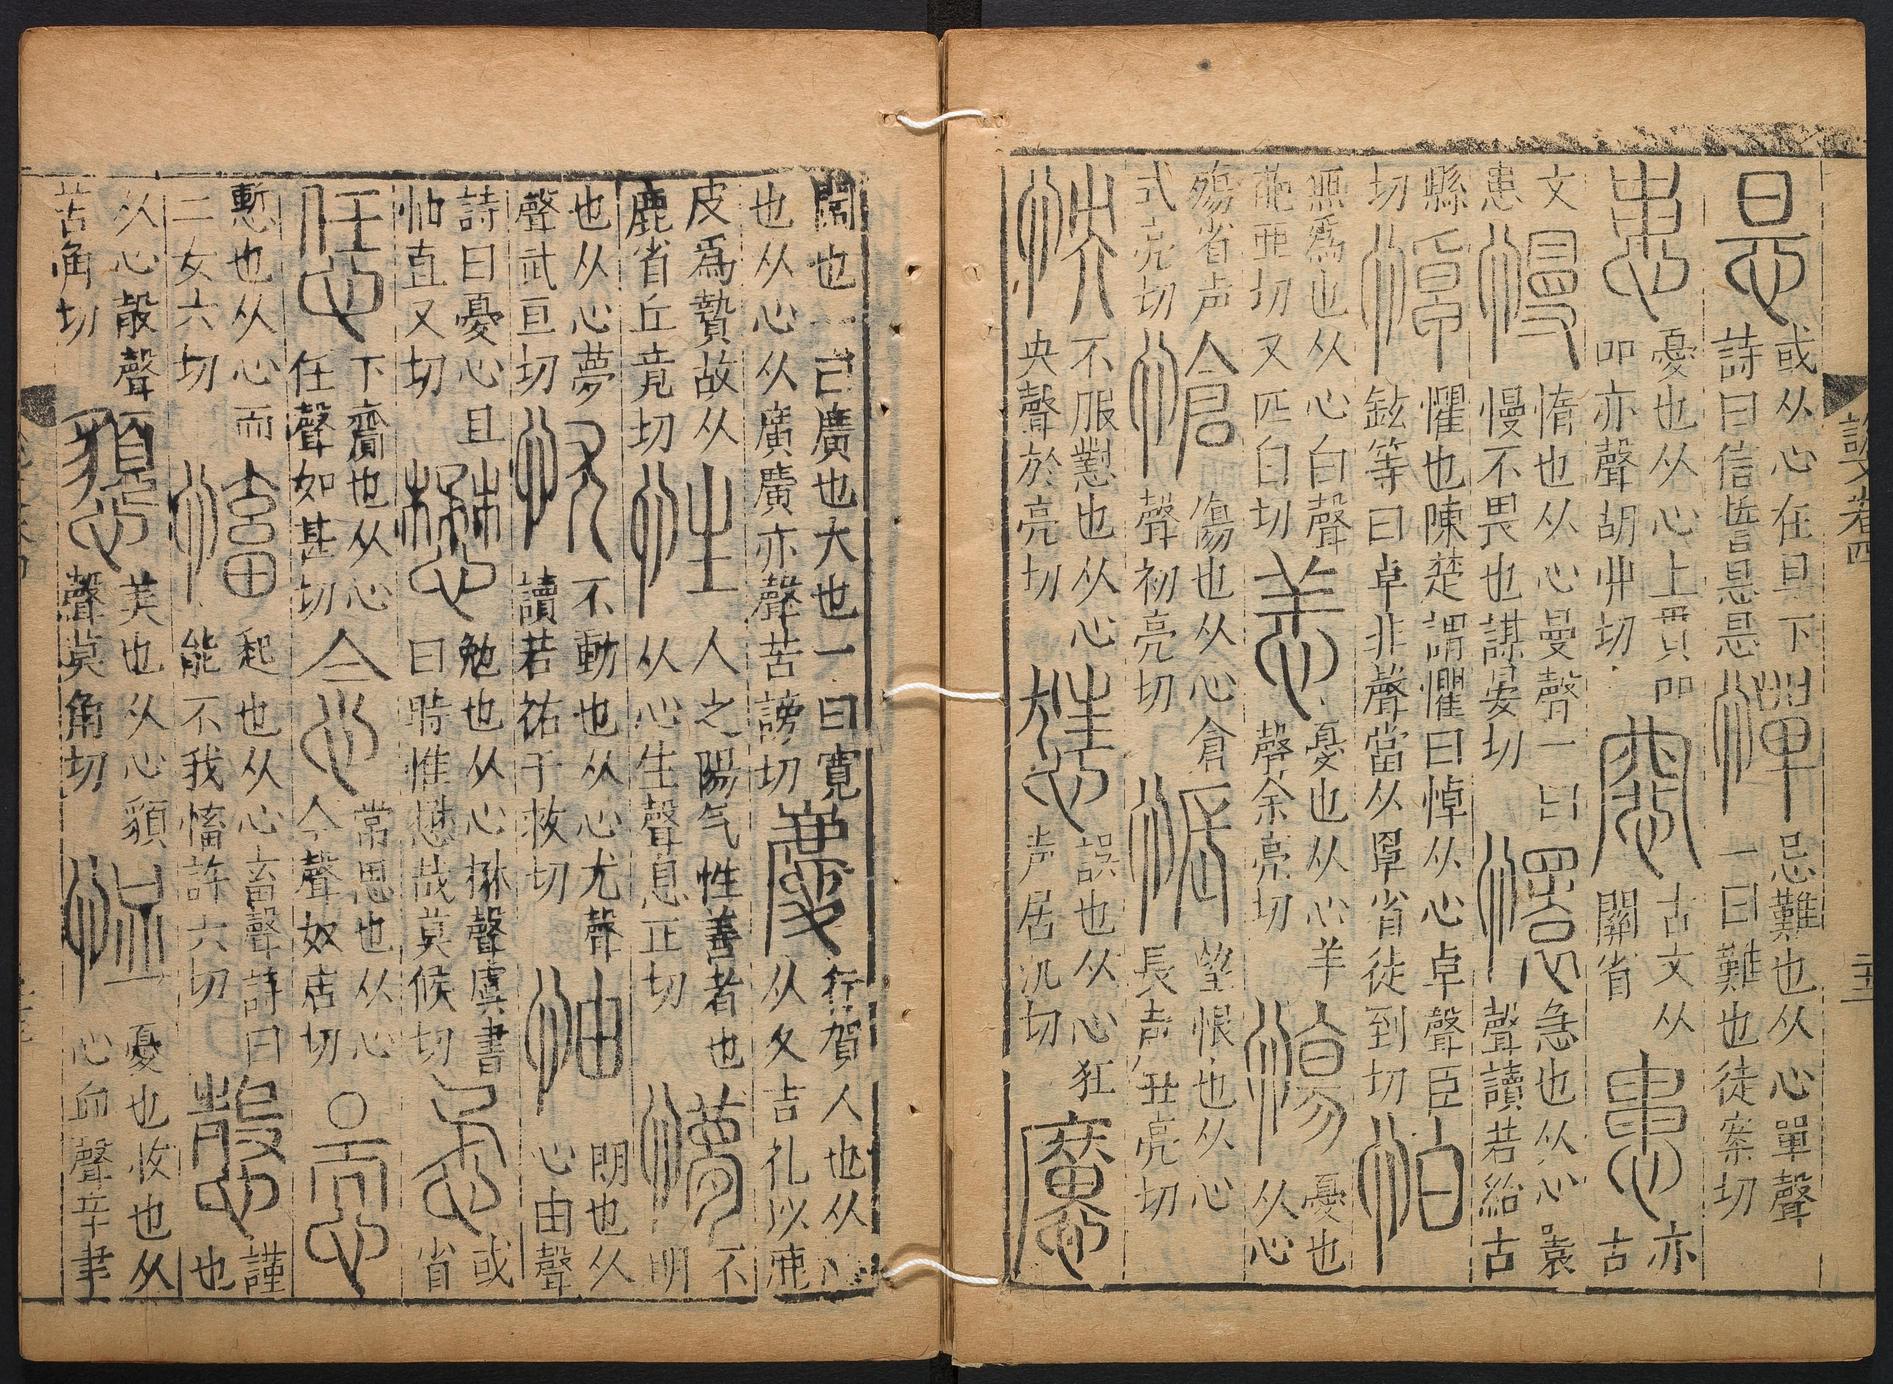 說文卷四
悬或从心在旦下詩曰信誓悬悬憚忌難也从心單聲一曰難也徒案切
患憂也从心上貫吅吅亦聲胡丱切古文从關省亦古
文患慢惰也从心曼聲一曰慢不畏也謀晏切懁急也从心瞏聲讀若絹古
縣切悼懼也陳楚謂懼曰悼从心卓聲臣鉉等曰卓非聲當从罩省徒到切怕
無爲也从心白聲葩亞切又匹白切恙憂也从心羊聲余亮切慯憂也从心
殤省声式亮切愴傷也从心倉聲初亮切悵望恨也从心長声丑亮切
怏不服懟也从心央聲於亮切𢙶誤也从心狂声居況切懬
闊也一曰廣也大也一曰寬也从心从廣廣亦聲苦謗切慶行賀人也从心从夊吉礼以鹿
皮爲贄故从鹿省丘竟切性人之陽气性善者也从心生聲息正切懜不明
也从心夢聲武亘切忧不動也从心尤聲讀若祐于救切怞朗也从心由聲
詩曰憂心且怞直又切懋勉也从心楙聲虞書曰時惟懋哉莫候切孞或省
恁下齎也从心任聲如甚切念常思也从心今聲奴店切恧
慙也从心而二女六切慉起也从心畜聲詩曰能不我慉許六切愨謹也
从心㱿聲苦角切懇美也从心䫉聲莫角切恤憂也收也从心血聲辛聿